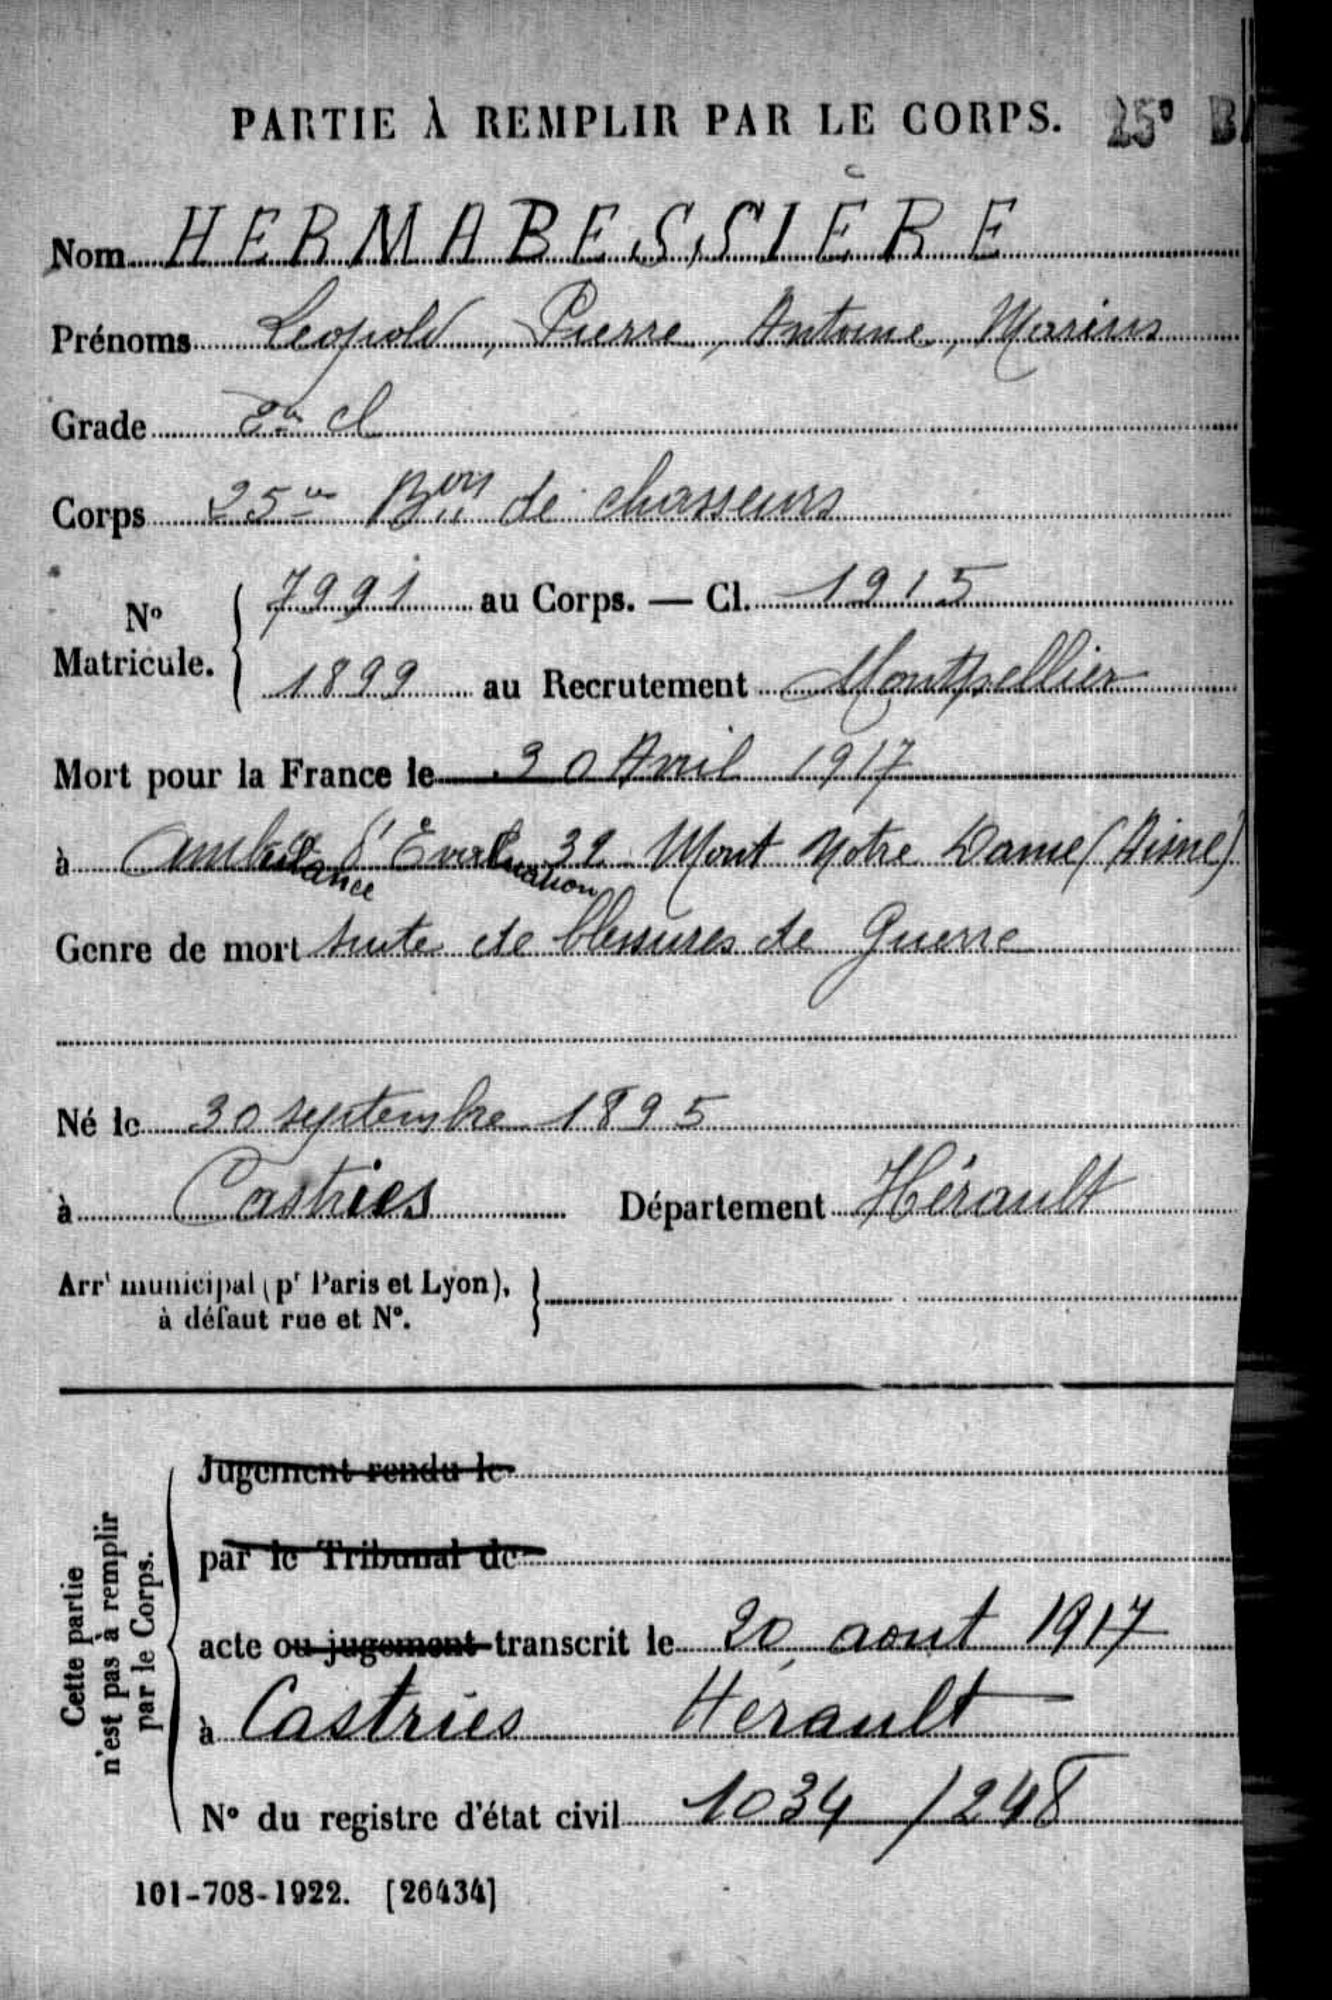 PARTIE À REMPLIR PAR LE CORPS. 25e B
Nom HERMABESSIÈRE
Prénoms Leopold, Pierre, Antoine, Marius
Grade 2e cl
Corps 25e Bon de chasseurs
No Matricule. { 7991 au Corps. — Cl. 1915
1899 au Recrutement Montpellier
Mort pour la France le 30 Avril 1917
à ambulance d'Evacuation 32 Mont Notre Dame (Aisne)
Genre de mort suite de blessures de Guerre
Né le 30 septembre 1895
à Castries Département Hérault
Arrt municipal (pr Paris et Lyon),
à défaut rue et No.
Cette partie
n'est pas à remplir
par le Corps.
Jugement rendu le
par le Tribunal de
acte ou jugement transcrit le 20 aout 1917
à Castries Hérault
No du registre d'état civil 1034 / 248
101-708-1922. [26434]